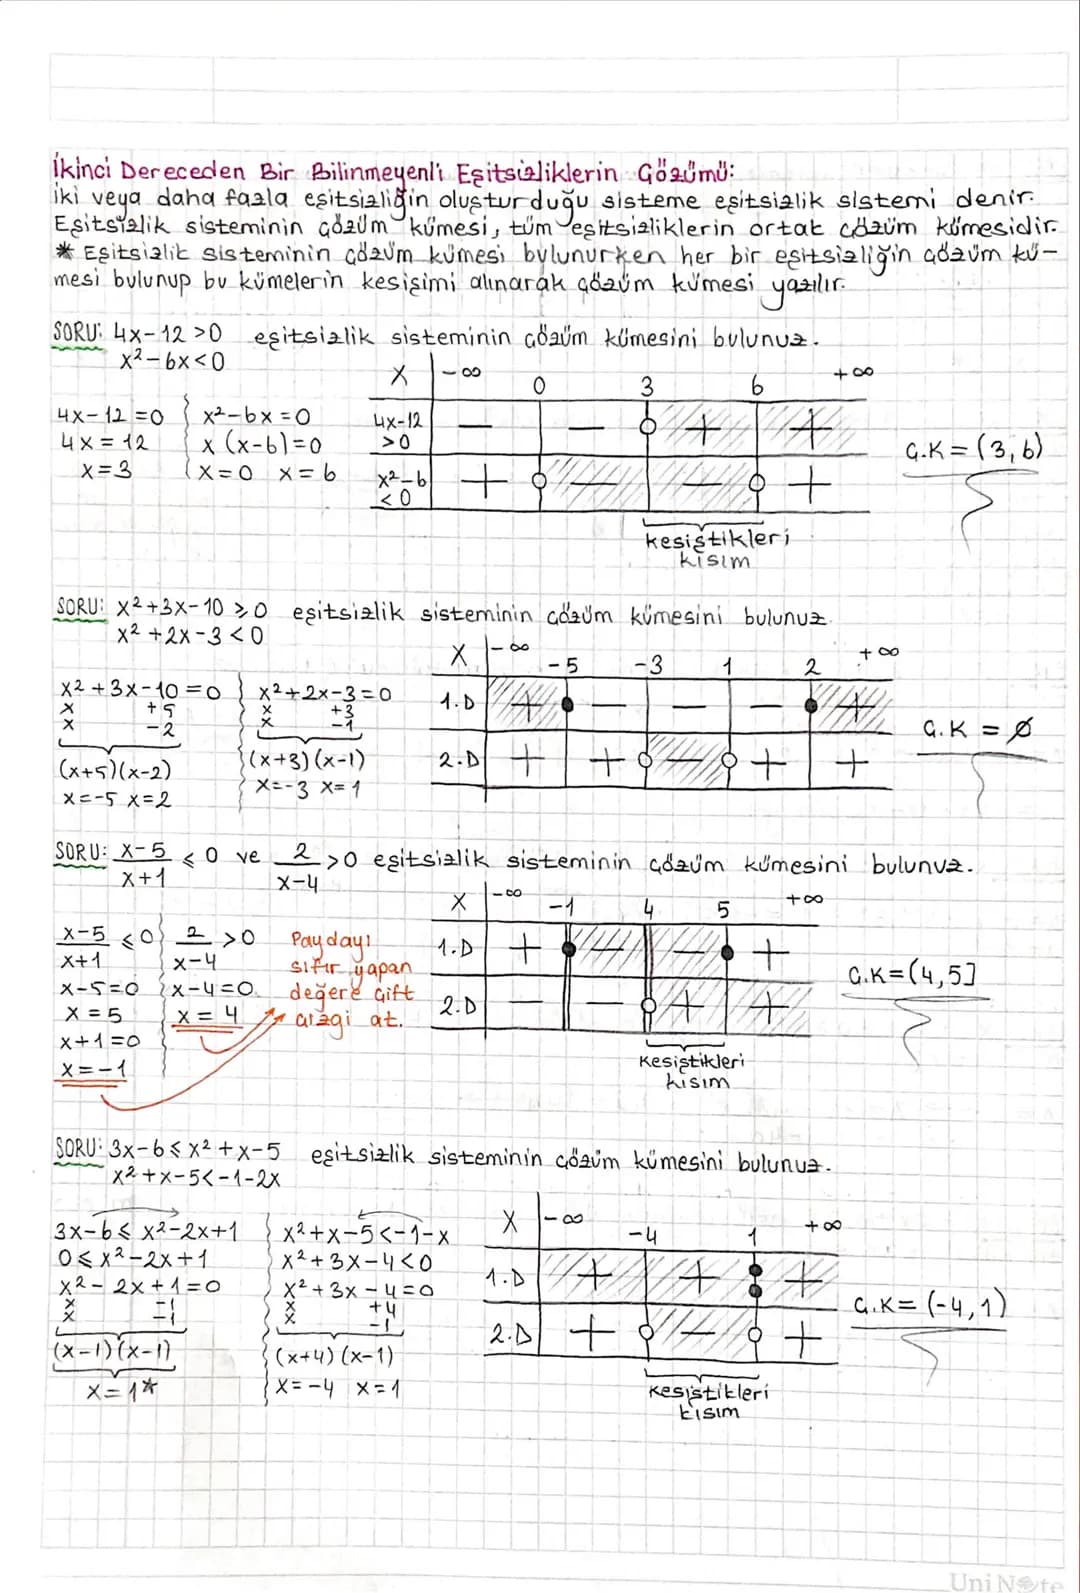 İkinci Dereceden Bir Bilinmeyenli Eşitsizliklerin Çözümü:
İki veya daha fazla eşitsizliğin oluşturduğu sisteme eşitsizlik sistemi denir.
Eşitsizlik sisteminin çözüm kümesi, tüm eşitsizliklerin ortak çözüm kümesidir.
* Eşitsizlik sisteminin çözüm kümesi bulunurken her bir eşitsizliğin çözüm kü-
mesi bulunup bu kümelerin kesişimi alınarak çözüm kümesi yazılır.
SORU: 4x-12>0 eşitsizlik sisteminin çözüm kümesini bulunuz.
x²-6x<0
x -∞ 0 3 6 +∞
4x-12=0 x²-6x=0 4x-12 >0 - - + +
4x=12 x(x-6)=0
x=3 x=0 x=6 x²-6 <0 + - - +
Ç.K=(3,6)
kesiştikleri
kısım
SORU: x²+3x-10⩾0 eşitsizlik sisteminin çözüm kümesini bulunuz.
x²+2x-3<0
x -∞ -5 -3 1 2 +∞
x²+3x-10=0 x²+2x-3=0 1.D + - - - +
x +5 x +3
x -2 x -1
Ç.K=Ø
(x+5)(x-2) (x+3)(x-1) 2.D + + - + +
x=-5 x=2 x=-3 x=1
SORU: x-5/x+1 ⩽0 ve 2/x-4 >0 eşitsizlik sisteminin çözüm kümesini bulunuz.
x -∞ -1 4 5 +∞
x-5/x+1 ⩽0 2/x-4 >0 Paydayı 1.D + - - +
sıfır yapan
x-5=0 x-4=0 değere çift 2.D - - + +
x=5 x=4 çizgi at.
x+1=0
x=-1
Ç.K=(4,5]
Kesiştikleri
kısım
SORU: 3x-6⩽x²+x-5 eşitsizlik sisteminin çözüm kümesini bulunuz.
x²+x-5<-1-2x
x -∞ -4 1 +∞
3x-6⩽x²-2x+1 x²+x-5<-1-x
0⩽x²-2x+1 x²+3x-4<0 1.D + + +
x²-2x+1=0 x²+3x-4=0
x -1 x +4
x -1 x -1 2.D + - +
(x-1)(x-1) (x+4)(x-1)
x=1* x=-4 x=1
Ç.K=(-4,1)
kesiştikleri
kısım
UniNote